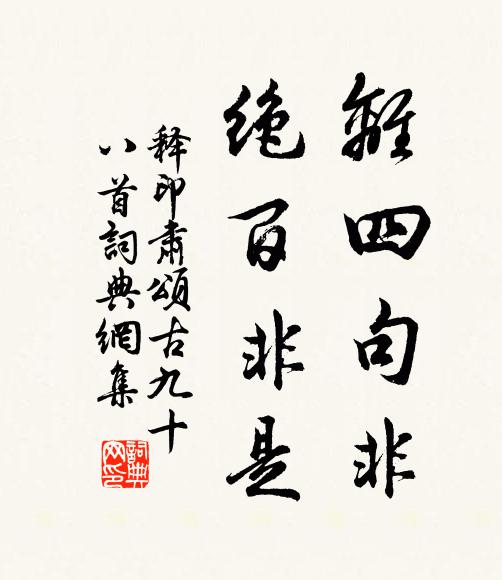 離四句非
絶百非是
释印肃頌古九十
八首詞典網集
詞典
网印